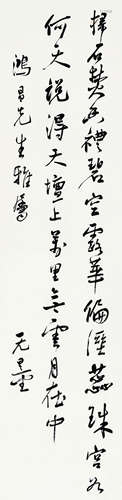 掃石焚香禮碧空露華偏湿蕊珠宮如
何天說得天壇上萬里無雲月在中
鴻昌先生雅屬
无量